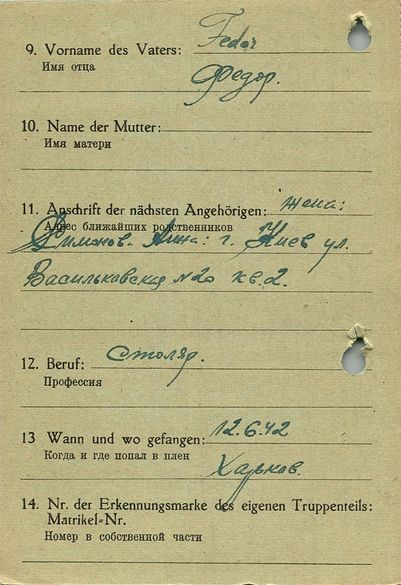 9. Vorname des Vaters: Fedor
Имя отца
Федор.
10. Name der Mutter:
Имя матери
11. Anschrift der nächsten Angehörigen: жена:
Адрес ближайших родственников
Анна: г. Киев ул.
Васильковская №20 кв. 2.
12. Beruf: Столяр.
Профессия
13 Wann und wo gefangen: 12.6.42
Когда и где попал в плен
Харьков.
14. Nr. der Erkennungsmarke des eigenen Truppenteils:
Matrikel-Nr.
Номер в собственной части